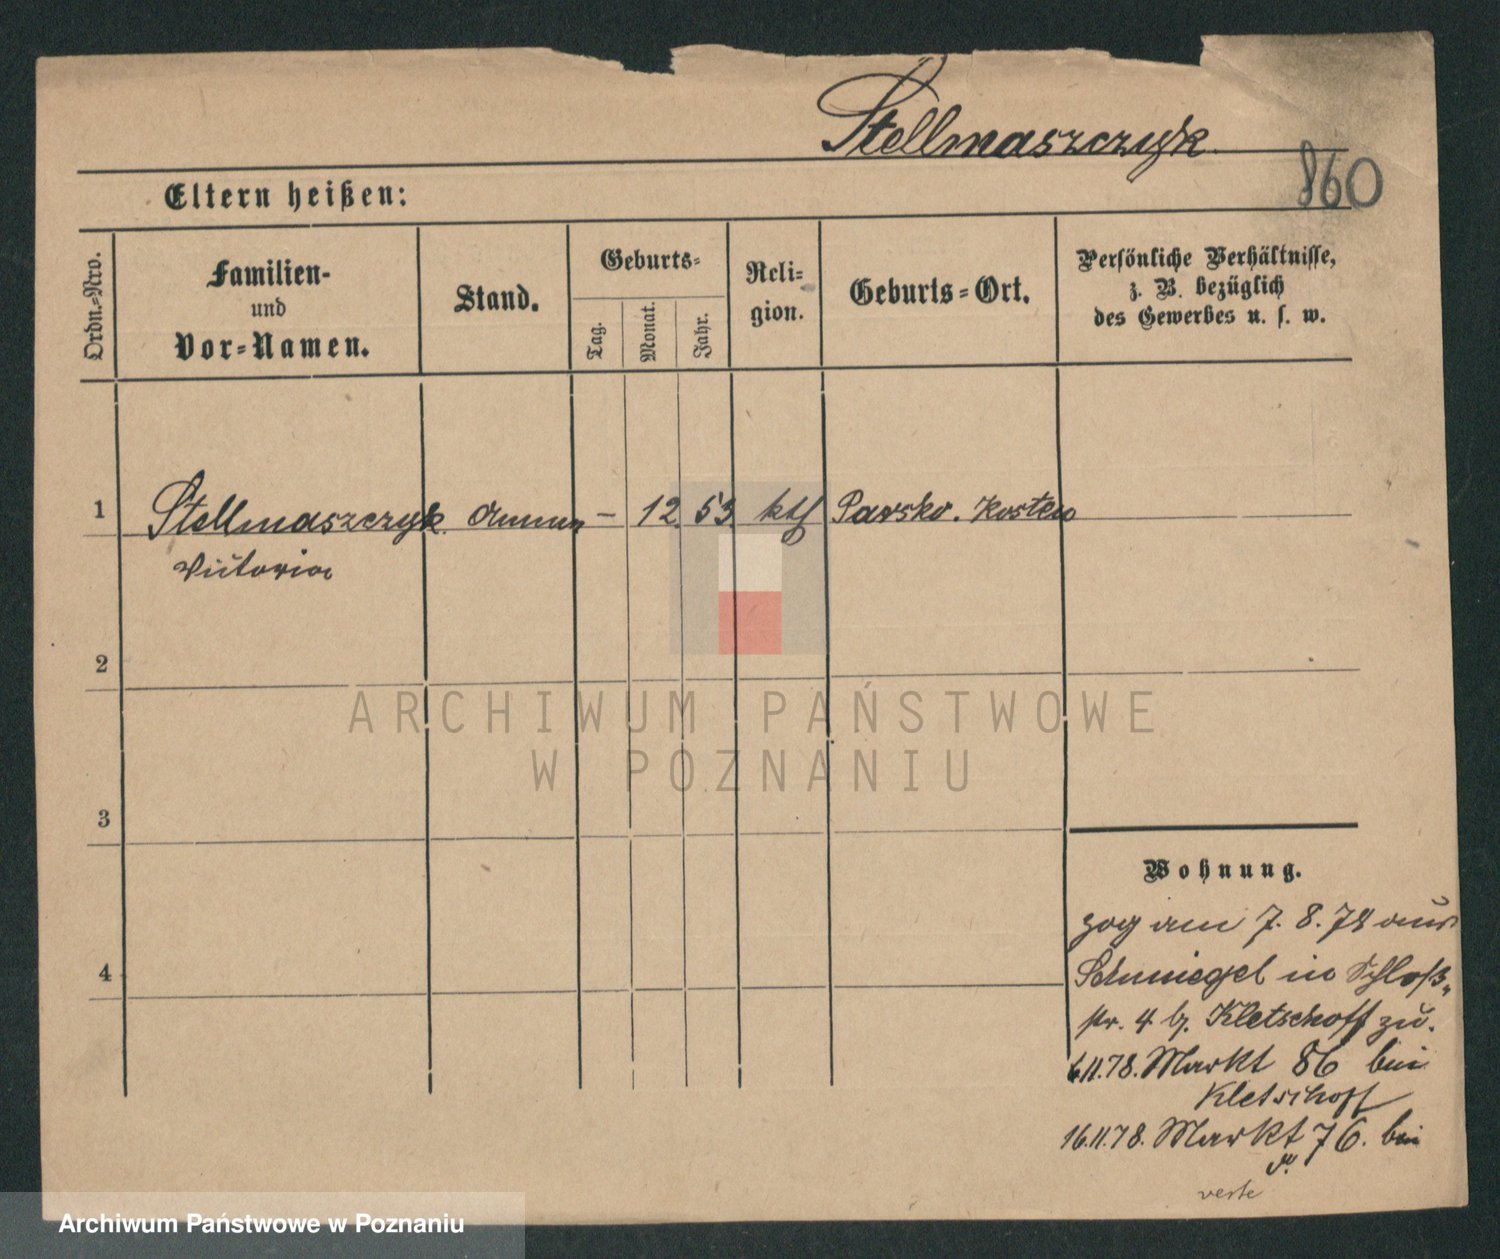 Stellmaszczyk
860
Eltern heißen:
Ordn.-Nro.
Familien-
und
Vor-Namen.
Stand.
Geburts-
Tag.
Monat.
Jahr.
Reli-
gion.
Geburts-Ort.
Persönliche Verhältnisse,
z. B. bezüglich
des Gewerbes u. s. w.
1 Stellmaszczyk Amme - 12. 53 kth Parsko. Kosten
Victoria
2
3
4
Wohnung.
zog am 7. 8. 78 aus
Schmiegel in Schloß-
str. 4 b. Kletschoff zu.
6.11.78. Markt 86 bei
Kletschoff
16.11.78. Markt 76. bei
d.
verte
ARCHIWUM PAŃSTWOWE
W POZNANIU
Archiwum Państwowe w Poznaniu